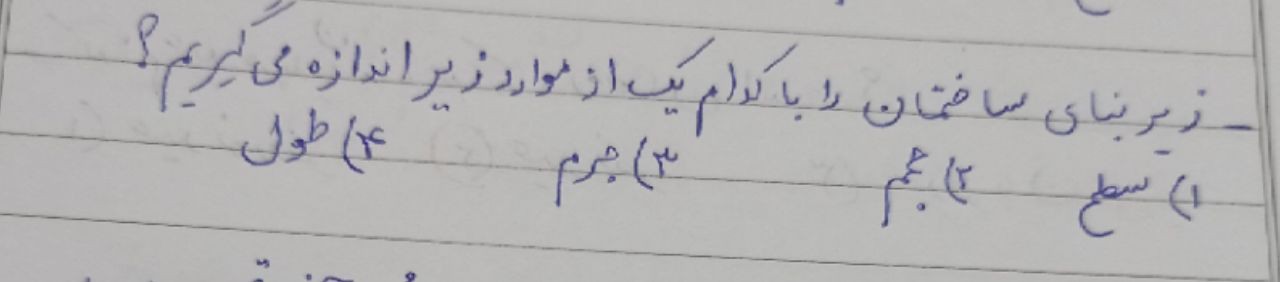 - زیر بنای ساختمان را با کدام یک از موارد زیر اندازه می گیریم؟
۱) سطح ۲) حجم ۳) جرم ۴) طول